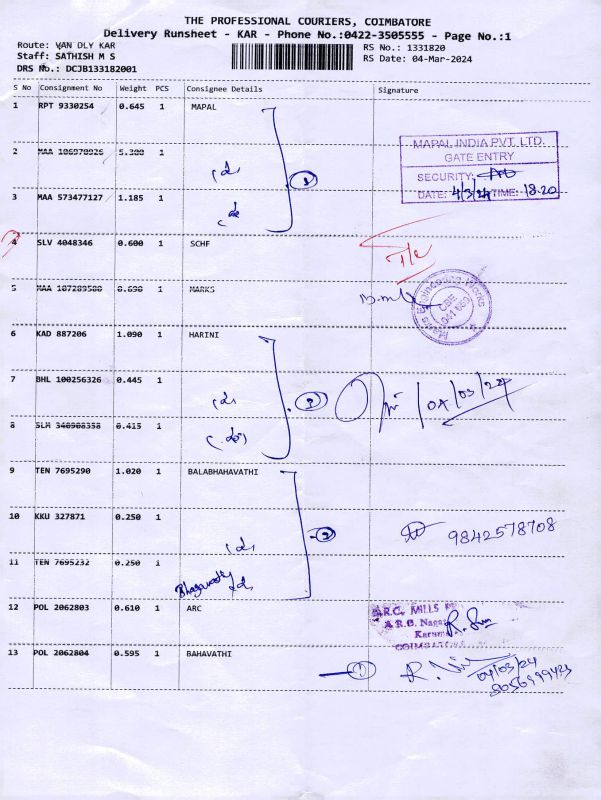 THE PROFESSIONAL COURIERS, COIMBATORE
Delivery Runsheet - KAR - Phone No.:0422-3505555 - Page No.:1
Route: VAN DLY KAR
RS No.: 1331820
Staff: SATHISH M S
RS Date: 04-Mar-2024
DRS No.: DCJB133182001
S No Consignment No Weight PCS Consignee Details Signature
1 RPT 9330254 0.645 1 MAPAL
MAPAL INDIA PVT. LTD.
GATE ENTRY
2 MAA 106970926 5.300 1
SECURITY:
DATE: 4/3/24 TIME: 18.20
3 MAA 573477127 1.185 1
4 SLV 4048346 0.600 1 SCHF
5 MAA 107289580 0.690 1 MARKS
Marks Engineering Works
CBE
641 050
6 KAD 887206 1.090 1 HARINI
7 BHL 100256326 0.445 1
04/03/24
8 SLM 340908358 0.415 1
9 TEN 7695290 1.020 1 BALABHAHAVATHI
10 KKU 327871 0.250 1
9842578708
11 TEN 7695232 0.250 1
12 POL 2062803 0.610 1 ARC
A.R.C. MILLS
13 POL 2062804 0.595 1 BAHAVATHI
1
04/03/24